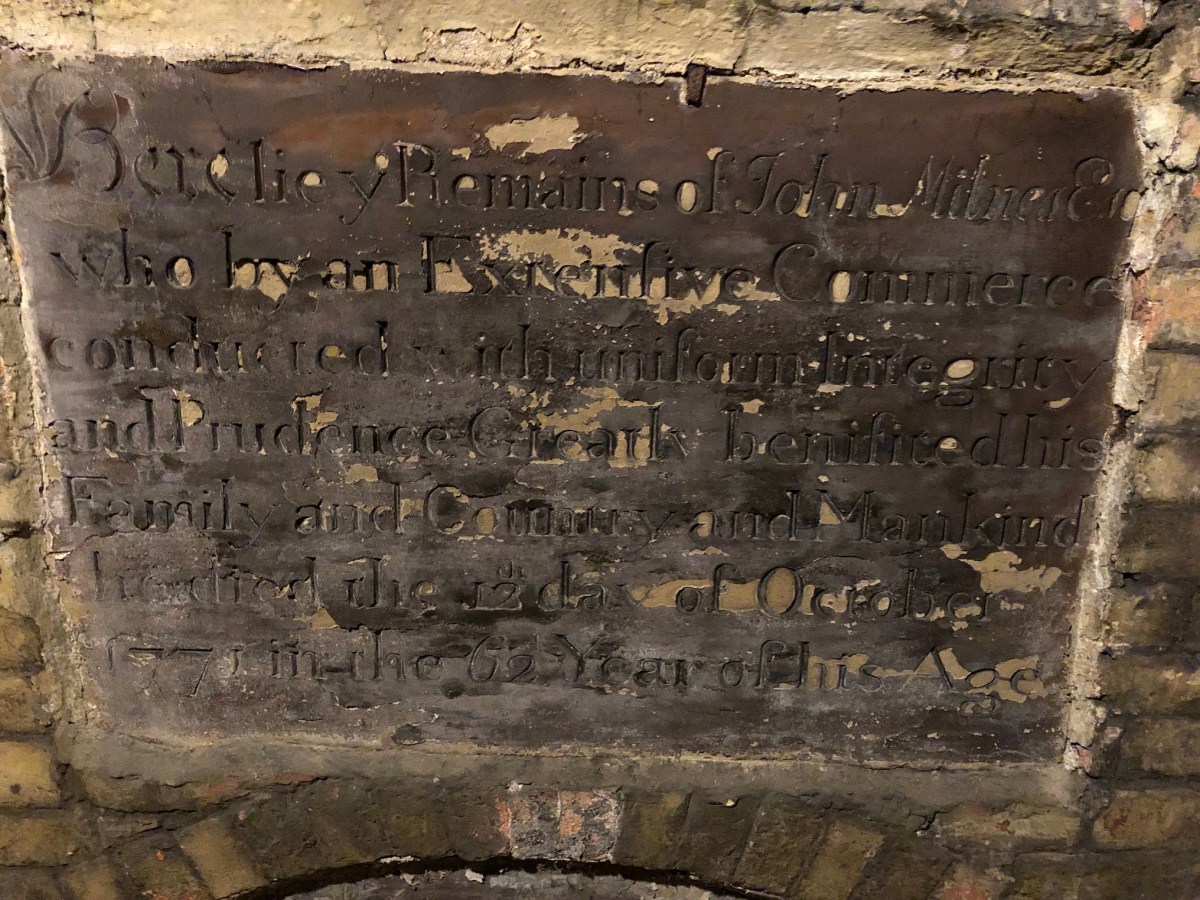 Here lie y Remains of John Milnes Esq
who by an Extensive Commerce
conducted with uniform Integrity
and Prudence Greatly benifited his
Family and Country and Mankind
he died the 12th day of October
1771 in the 62 Year of his Age